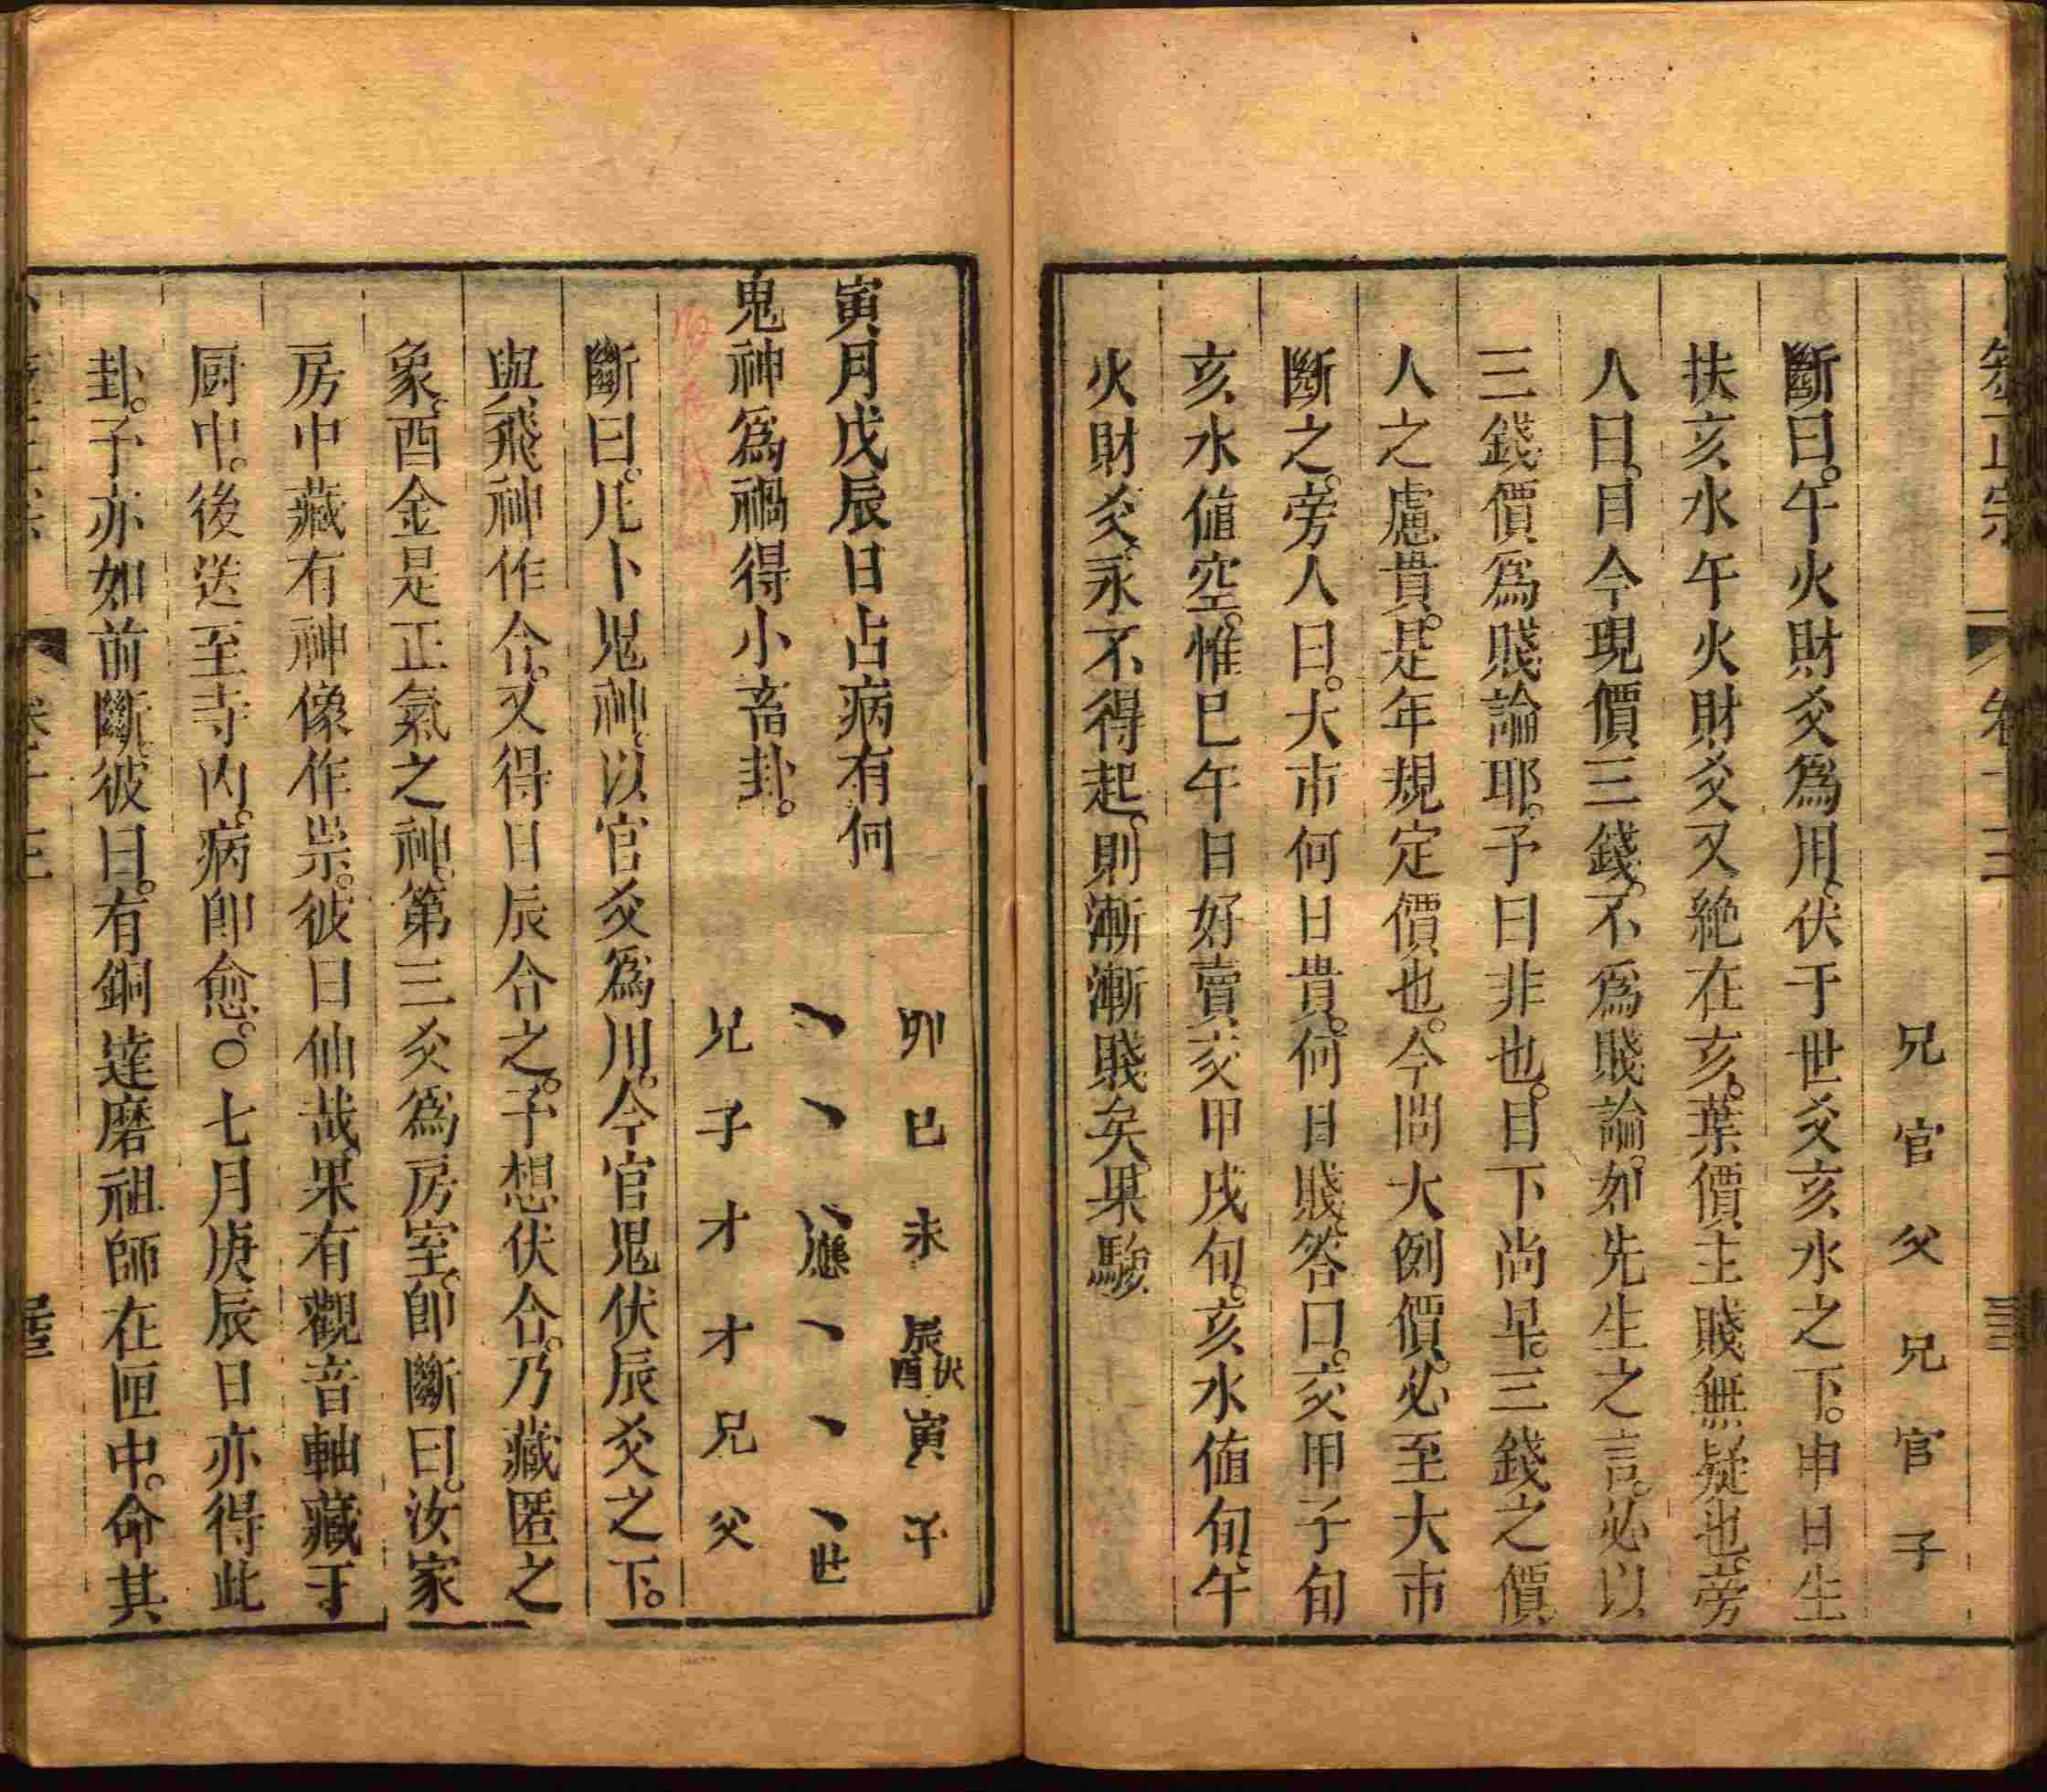 兄官父兄官子
斷曰。午火財爻爲用。伏于世爻亥水之下。申日生
扶亥水午火財爻又絶在亥。葉價主賤無疑也。旁
人曰。目今現價三錢。不爲賤論。如先生之言。必以
三錢價爲賤論耶。予曰非也。目下尚早。三錢之價
人之慮貴。是年規定價也。今問大例價。必至大市
斷之。旁人曰。大市何日貴。何日賤。答曰。交甲子旬
亥水値空。惟巳午日好賣。交甲戌旬。亥水値旬。午
火財爻。永不得起。則漸漸賤矣。果驗
寅月戊辰日占病有何
鬼神爲禍得小畜卦。
卯巳未辰伏酉寅子
丶丶〃應丶丶丶世
兄子才才兄父
斷曰。凡卜鬼神。以官爻爲用。今官鬼伏辰爻之下。
與飛神作合。又得日辰合之。予想伏合。乃藏匿之
象。酉金是正氣之神。第三爻爲房室。卽斷曰。汝家
房中藏有神像作祟。彼曰仙哉。果有觀音軸藏于
厨中。後送至寺內。病卽愈。○七月庚辰日亦得此
卦。予亦如前斷。彼曰。有銅達磨祖師在匣中。命其